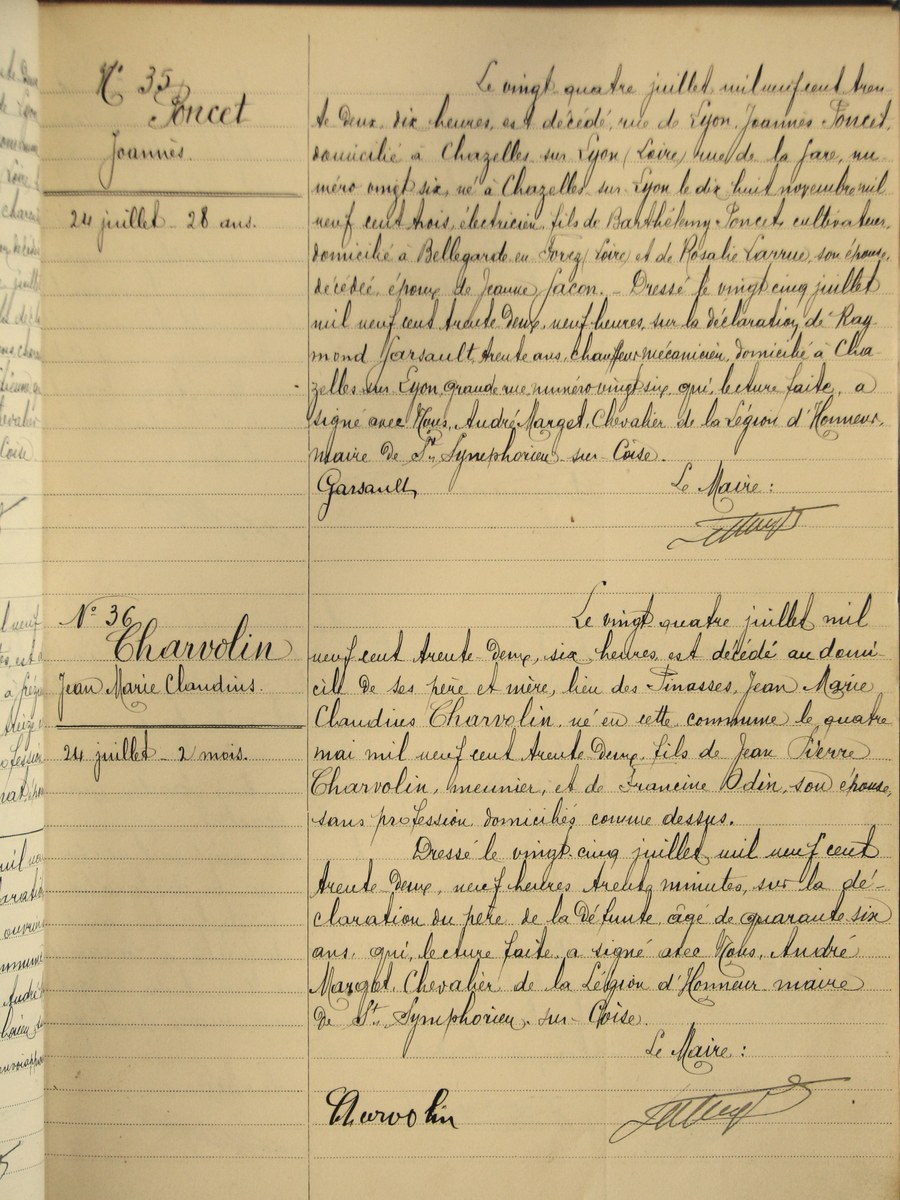 N° 35
Poncet
Joannès.
24 juillet - 28 ans.
Le vingt quatre juillet mil neuf cent tren-
te deux, dix heures, est décédé, rue de Lyon, Joannès Poncet,
domicilié à Chazelles sur Lyon (Loire) rue de la Gare, nu-
méro vingt six, né à Chazelles sur Lyon le dix huit novembre mil
neuf cent trois, électricien, fils de Barthélemy Poncet, cultivateur,
domicilié à Bellegarde en Forez (Loire) et de Rosalie Larrue, son épouse,
décédée, époux de Jeanne Jacon. - Dressé le vingt cinq juillet
mil neuf cent trente deux, neuf heures, sur la déclaration de Ray-
mond Garsault, trente ans, chauffeur mécanicien, domicilié à Cha-
zelles sur Lyon, grande rue, numéro vingt six, qui, lecture faite, a
signé avec Nous, André Marget, Chevalier de la Légion d'Honneur,
maire de St Symphorien sur Coise.
Garsault
Le Maire :
N° 36
Charvolin
Jean Marie Claudius.
24 juillet - 2 mois.
Le vingt quatre juillet mil
neuf cent trente deux, six heures, est décédé au domi-
cile de ses père et mère, lieu des Pinasses, Jean Marie
Claudius Charvolin, né en cette commune le quatre
mai mil neuf cent trente deux, fils de Jean Pierre
Charvolin, meunier, et de Francine Odin, son épouse,
sans profession domiciliés comme dessus.
Dressé le vingt cinq juillet mil neuf cent
trente deux, neuf heures trente minutes, sur la dé-
claration du père de la défunte âgé de quarante six
ans, qui, lecture faite, a signé avec Nous, André
Marget, Chevalier de la Légion d'Honneur maire
de St Symphorien sur Coise.
Le Maire :
Charvolin